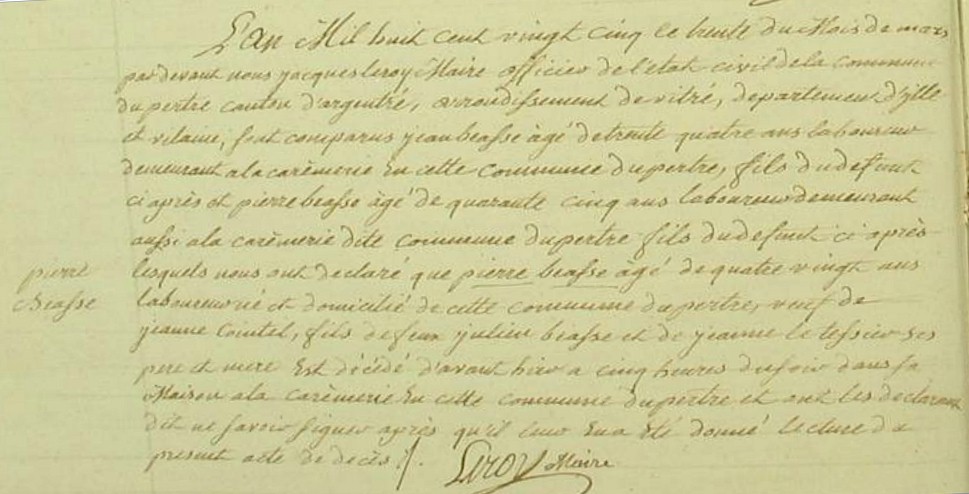 L'an Mil huit cent vingt cinq le trente du Mois de mars
par devant nous jacques leroy Maire officier de l'etat civil de la commune
du pertre canton d'argentré, arrondissement de vitré, departement d'ille
et vilaine, sont comparus jean beasse àgé de trente quatre ans laboureur
demeurant a la carêmerie En cette commune du pertre, fils du defunt
ci après et pierre beasse àgé de quarante cinq ans laboureur demeurant
aussi a la carêmerie dite commune du pertre fils du defunt ci après
lesquels nous ont declaré que pierre beasse àgé de quatre vingt ans
pierre
Beasse
laboureur né et domicilié de cette commune du pertre, veuf de
jeanne Cointel, fils de feux julien beasse et de jeanne le tessier ses
pere et mere Est décédé d'avant hier a cinq heures du soir dans sa
Maison a la carêmerie En cette commune du pertre et ont les declarants
dit ne savoir signer après qu'il leur En a été donné lecture du
present acte de decès /.
Leroy Maire